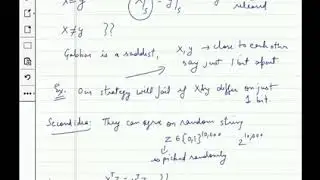 x = y released
x ≠ y }}
Gabbar is a saddist, x, y → close to each other
say just 1 bit apart
Our strategy will fail if x & y differ on just
1 bit
Second idea: They can agree on random string
z ∈ {0,1}^10,000 2^10,000
is picked randomly